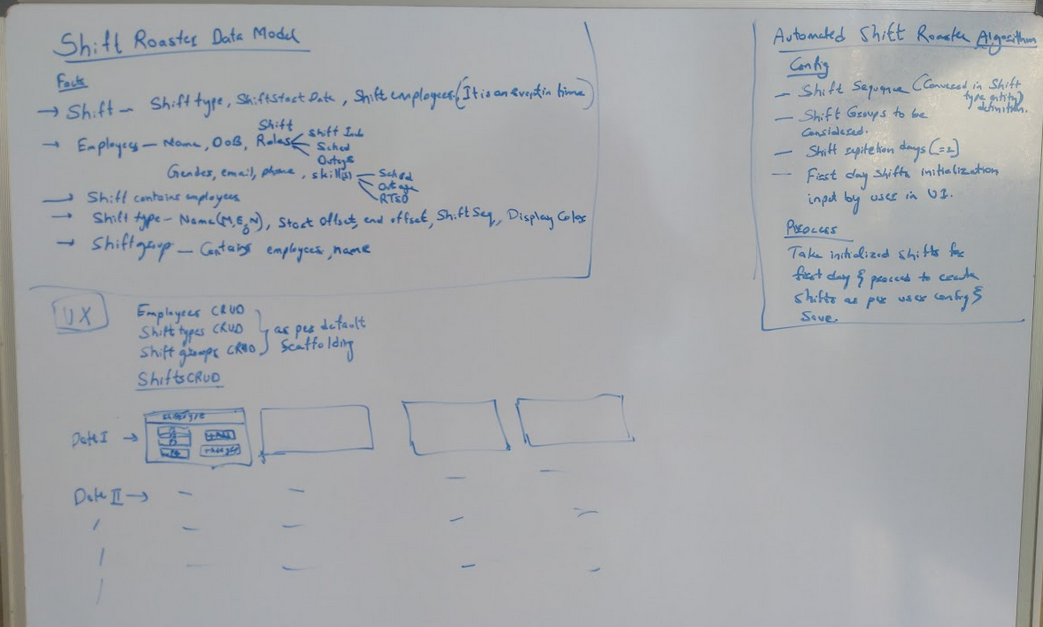 Shift Roaster Data Model
Facts
→ Shift – Shift type, Shift Start Date, Shift employees (It is an event in time)
→ Employees – Name, DoB, Shift Roles
Shift Incl
Sched
Outage
Gender, email, phone, skill(s)
Sched
Outage
RTSD
→ Shift contains employees
→ Shift type – Name(M,E,N), Start Offset, end offset, Shift Seq, Display Color
→ Shift group – Contains employees, name
UX
Employees CRUD
Shift types CRUD
Shift groups CRUD
as per default
Scaffolding
Shifts CRUD
Date I →
Date II →
Automated Shift Roaster Algorithm
Config
– Shift Sequence (Covered in Shift type entity definition)
– Shift Groups to be
considered.
– Shift repitetion days (=2)
– First day Shifts initialization
input by user in UI.
Process
Take initialized shifts for
first day & proceed to create
shifts as per user config &
Save.